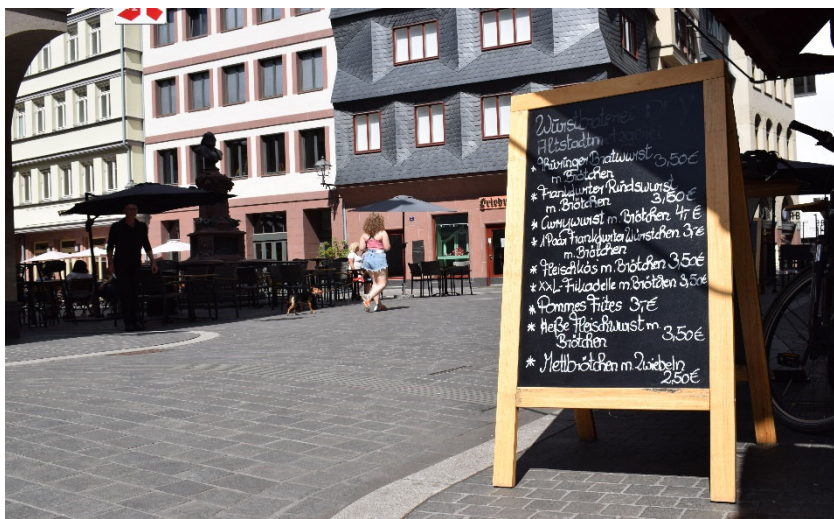 Altstadtm
* Thüringer Bratwurst
m. Brötchen 3,50€
* Frankfurter Rindswurst
m. Brötchen 3,50€
* Currywurst m. Brötchen 4,-€
* 1 Paar Frankfurter Würstchen 3,-€
m. Brötchen
* Fleischkäs m. Brötchen 3,50€
* XXL-Frikadelle m. Brötchen 3,50€
* Pommes Frites 3,-€
* Heiße Fleischwurst m.
Brötchen 3,50€
* Mettbrötchen m. Zwiebeln
2,50€